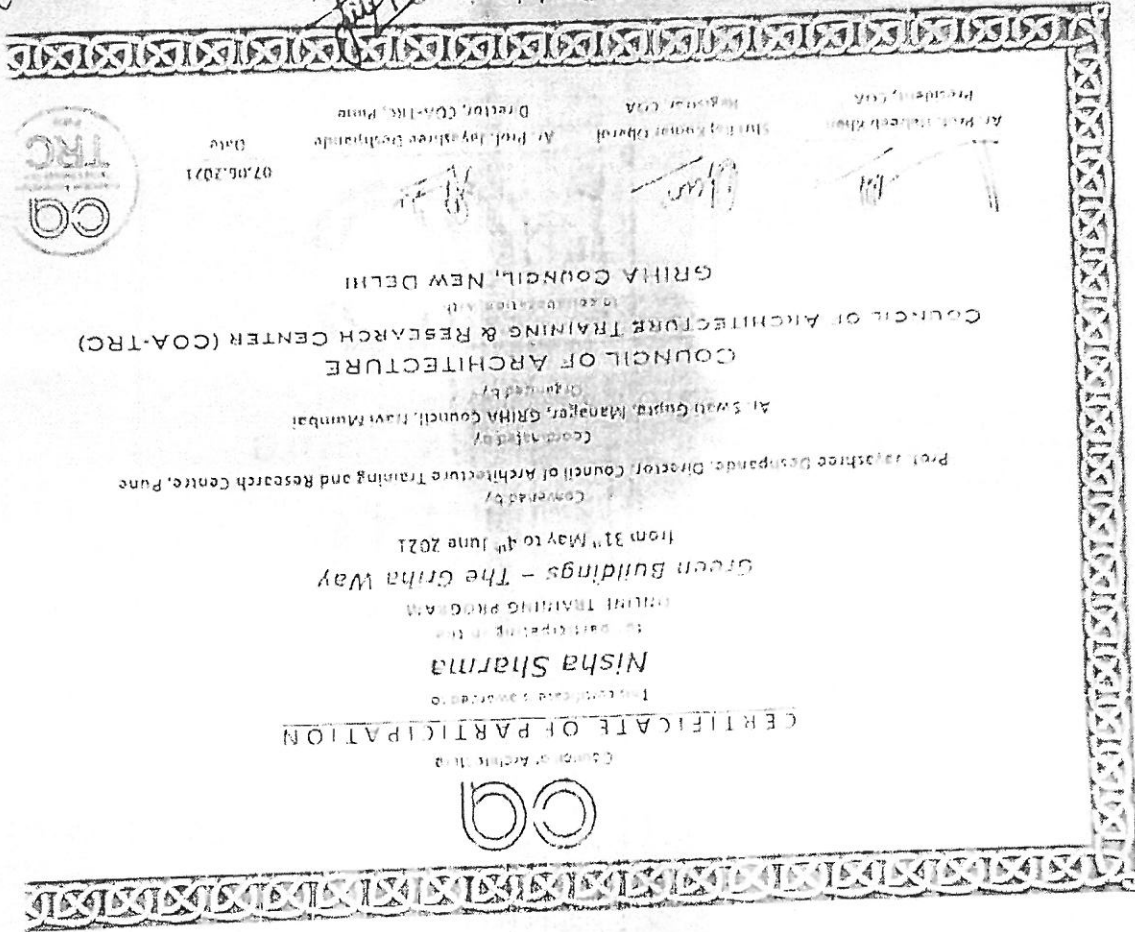 Council of Architecture
CERTIFICATE OF PARTICIPATION
This certificate is awarded to
Nisha Sharma
for participating in the
ONLINE TRAINING PROGRAM
Green Buildings – The Griha Way
from 31st May to 4th June 2021
Convened by
Prof. Jayashree Deshpande, Director, Council of Architecture Training and Research Centre, Pune
Coordinated by
Ar. Swati Gupta, Manager, GRIHA Council, Navi Mumbai
Organized by
COUNCIL OF ARCHITECTURE
COUNCIL OF ARCHITECTURE TRAINING & RESEARCH CENTER (COA-TRC)
in collaboration with
GRIHA COUNCIL, NEW DELHI
Ar. Prof. Habeeb Khan
President, COA
Shri Raj Kumar Oberoi
Registrar, COA
Ar. Prof. Jayashree Deshpande
Director, COA-TRC, Pune
07.06.2021
Date
TRC